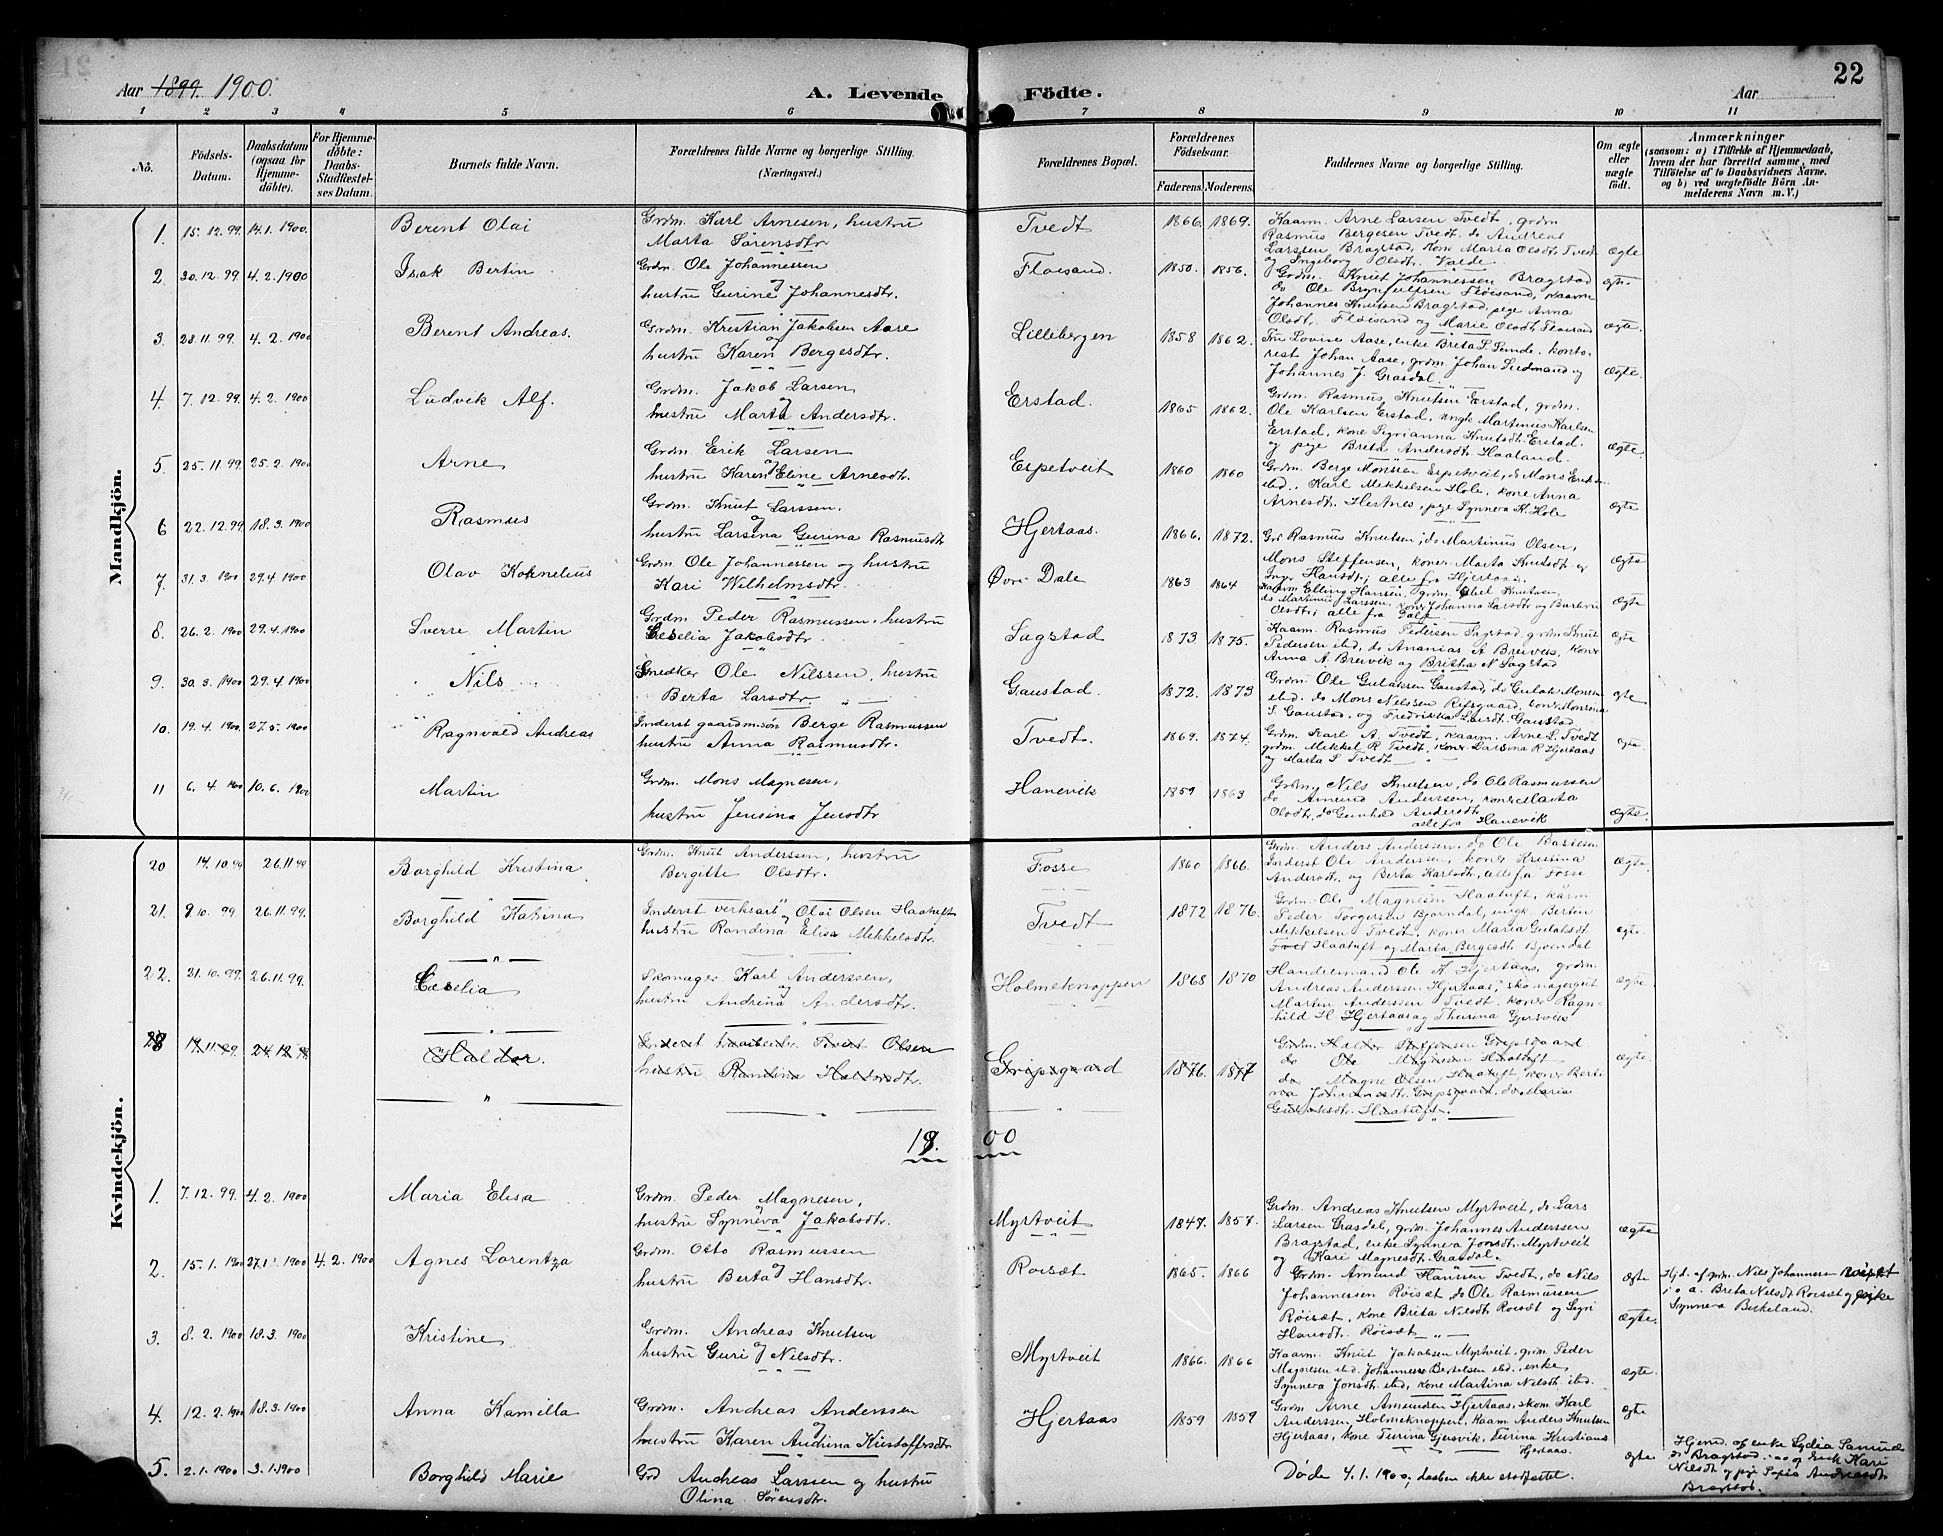 22
Aar 1899. 1900. A. Levende Födte. Aar
1 2 3 4 5 6 7 8 9 10 11
No. Födsels-Datum. Daabsdatum (ogsaa for Hjemmedöbte). For Hjemmedöbte: Daabs-Stadfæstelses Datum. Barnets fulde Navn. Forældrenes fulde Navne og borgerlige Stilling. (Næringsvei.) Forældrenes Bopæl. Forældrenes Födselsaar. Faderens. Moderens. Faddernes Navne og borgerlige Stilling. Om ægte eller uægte födt. Anmærkninger (saasom: a) i Tilfælde af Hjemmedaab, hvem der har forrettet samme, med Tilföielse af to Daabsvidners Navne, og b) ved uægtefödte Börn Anmelderens Navn m. V.)
Mandkjön.
1. 15. 12. 99. 14.1. 1900. Berent Olai Grdm. Karl Arnesen, hustru Marta Sörensdtr Tvedt 1866. 1869. Kaarm. Arne Larsen Tvedt, grdm Rasmus Bergesen Tvedt, do Andreas Larssen Bragstad, kone Maria Olsdt. Tvedt og Ingeborg Olsdt. Valde. ægte
2 30. 12. 99 4. 2. 1900 Isak Bertin Grdm. Ole Johannessen og hustru Gurine Johannesdtr. Floisand. 1850. 1856. Grdm. Knut Johannessen Bragstad do Ole Brynjulfsen Floisand, kaarm Johannes Knutsen Bragstad, pige Anna Olsdt. Floisand og Marie Olsdt. Floisand ægte.
3. 28. 11. 99. 4. 2. 1900 Berent Andreas. Grdm. Kristian Jakobsen Aase og hustru Karen Bergesdtr. Lillebergen 1858 1862. Fru Lovise Aase, enke Brita S. Sunde, kontorist Johan Aase, grdm Johan Lidmand og Johannes J. Grasdal. ægte.
4. 7. 12. 99. 4. 2. 1900 Ludvik Alf. Grdm. Jakob Larsen og hustru Marta Andersdtr. Erstad. 1865 1862. Grdm. Rasmus Knutsen Erstad, grdm. Ole Karlsen Erstad, ungk. Martinus Karlsen Erstad, kone Sigrianna Knutsdt. Erstad. og pige Brita Andersdt. Haaland. ægte.
5. 25. 11. 99. 25. 2. 1900 Arne Grdm. Erik Larsen og hustru Karen Eline Arnesdtr. Espetveit 1860 1860 Grdm. Berge Monssen Espetveit, do Mons Eriksen ibd., Karl Mikkelsen Hole, kone Anna Arnesdt. Hestnes, pige Synneva K. Hole ægte
6 22. 12. 99 18. 3. 1900 Rasmus Grdm. Knut Larssen, og hustru Larsina Gurina Rasmusdt Hjertaas. 1866. 1872. Grd Rasmus Knutsen, do Martinus Olsen, Mons Steffensen, koner Marta Knutsdt og Inger Hansdt; alle fra Hjertaas. ægte
7. 31. 3. 1900 29.4 1900 Olav Kornelius Grdm. Ole Johannessen og hustru Kari Wilhelmsdtr. Øvre Dale 1863 1864 Kaarm Elling Hansen, grdm. Abel Knutsen, do Martinus J. Larssen, koner Johanna Larsdtr og Barbru Olsdtr; alle fra Dale. ægte
8. 26. 2. 1900 29.4. 1900 Sverre Martin Grdm. Peder Rasmussen, hustru Cecelia Jakobsdtr. Sagstad 1873 1875. Kaarm. Rasmus Pedersen Sagstad, grdm Knut Pedersen ibd, do Ananias A Breivik, kone Anna A. Breivik og Britha N. Sagstad ægte
9. 30. 3. 1900 29. 4. 1900 Nils Snedker Ole Nilssen, hustru Berta Larsdtr. Gaustad. 1872. 1873 Grdm. Ole Gulaksen Gaustad, do Gulak Monsen ibd. do Mons Nilssen Refsgaard, kone Monsina S. Gaustad, og Fredrikka Larsdt. Gaustad ægte
10. 19. 4. 1900 27. 5. 1900 Ragnvald Andreas Inderst gaardm.sön Berge Rasmussen hustru Anna Rasmusdtr. Tvedt. 1869. 1874. Grdm. Karl A. Tvedt, kaarm. Arne L. Tvedt grdm. Mikkel R. Tvedt, kone Larsina R Hjertaas og Marta S. Tvedt ægte
11 6. 4 1900 10. 6. 1900 Martin Grdm. Mons Magnesen, hustru Jensina Jensdtr Hanevik 1859 1863 Grdm. Nils Knutsen, do Ole Rasmussen do Amund Andersen, koner Marta Olsdt, do Gunhild Andersdt alle fra Hanevik ægte.
Kvindekjön.
20 14. 10. 99 26. 11. 99. Borghild Kristina Grdm. Knut Anderssen, hustru Bergitte Olsdtr. Fosse 1860 1866. Grdm. Anders Anderssen, do Ole Bastesen Inderst Ole Anderssen, koner Kristina Andersdtr. og Berta Karlsdt, alle fra Fosse ægte.
21. 9 10. 99. 26. 11. 99. Borghild Katina Inderst verksarb. Olai Olsen Haatuft og hustru Randina Elisa Mikkelsdtr. Tvedt 1872 1876. Grdm. Ole Magnesen Haatuft, kårm Peder Torgersen Bjorndal, ungk. Bertin Mikkelsen Tvedt, koner Maria Gulaksdt Tved Haatuft og Marta Bergesdt Bjorndal ægte.
22. 21. 10. 99. 26. 11. 99. Cecelia Skomager Karl Anderssen, og hustru Andrina Andersdtr. Holmeknappen 1868 1870 Handelsmand Ole A. Hjertaas, grdm. Andreas Anderssen Hjertaas, skomagergut Martin Anderssen Tvedt. koner Ragnhild H. Hjertaas og Thurina Gjersvik ægte.
28 17. 11. 99. 24. 12. 99 Haldor. Olsen hustru Randina Haldorsdtr. Gripsgaard 1876. 1877 Grdm. Haldor Steffensen Gripsgaard do Ole Magnesen Haatuft do Magne Olsen Haatuft, koner Bertina Johannesdt. Gripsgaard, do Maria Gulaksdtr. Haatuft. ægte.
1900
1. 7. 12. 99. 4. 2. 1900 Maria Elisa Grdm. Peder Magnesen, og hustru Synneva Jakobsdtr. Myrtveit 1847. 1857. Grdm. Andreas Knutsen Myrtveit, do Lars Larsen Grasdal, grdm. Johannes Anderssen Bragstad, enke Synneva Jonsdt. Myrtveit og Kari Magnesdt. Grasdal. ægte
2. 15. 1. 1900 27.1. 1900 4. 2. 1900 Agnes Lorentza Grdm. Otto Rasmussen og hustru Berta Hansdtr. Roisæt 1865. 1866 Grdm. Amund Hanssen Tvedt, do Nils Johannessen Röisæt, do Ole Rasmussen Röisæt, kone Brita Nilsdt Roisdt og Sigri Hansdt. Röisæt ægte Hjd. af grdm. Nils Johannesen Röiset i o. a. Brita Nilsdt Roisæt og pike Synneva Birkeland.
3. 8. 2. 1900 18. 3. 1900 Kristine Grdm. Andreas Knutsen og hustru Guri Nilsdtr. Myrtveit 1866. 1866 Kaarm. Knut Jakobsen Myrtveit, grdm. Peder Magnesen ibd. Johannesse Bertelsen ibd. enke Synneva Jonsdt. ibd, kone Martina Nilsdt. ibd. ægte.
4. 12. 2. 1900 18. 3. 1900 Anna Kamilla Grdm. Andreas Anderssen og hustru Karen Andrina Kristoffersdtr Hjertaas 1859 1859 Grdm Arne Amunden Hjertaas, skom. Karl Anderssen, Holmeknappen, Kaarm. Anders Knutsen Hjertaas, kone Turina Gjersvik, Turina Kristians Hjertaas. ægte
5. 2. 1. 1900 3. 1. 1900 Borghild Marie Grd Andreas Larssen og hustru Olina Sörensdtr. Döde 4. 1. 1900, daaben ikke stadfæstet. ægte Hjemd. af enke Lydia Samuels Bragstad Kari Nilsdt og pige Sofia Andreasdt Bragstad.